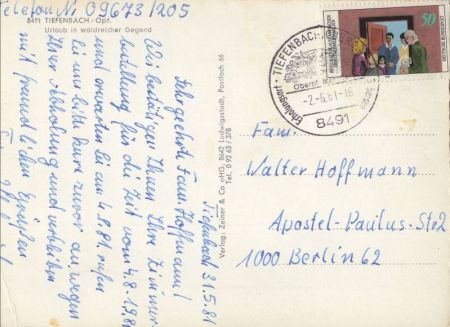 Telefon Nr 09673/205
8491 TIEFENBACH - Opf.
Urlaub in waldreicher Gegend
Tiefenbach 31.5.81
Sehr geehrte Fam. Hoffmann!
Wir bestätigen Ihnen Ihre Zimmer-
bestellung für die Zeit vom 4.8.1981
und erwarten Sie am 4.8.81. rufen
Sie uns bitte kurz zuvor an wegen
Ihrer Abholung und verbleiben
mit freundlichen Grüßen
Verlag: Zeiner & Co oHG, 8642 Ludwigsstadt, Postfach 66
Tel. 0 92 63 / 378
Erholungsort · TIEFENBACH
Oberpf.
-2.-6.81-18
8491
50
DEUTSCHE BUNDESPOST
Fam.
Walter Hoffmann
Apostel-Paulus-Str 2
1000 Berlin 62